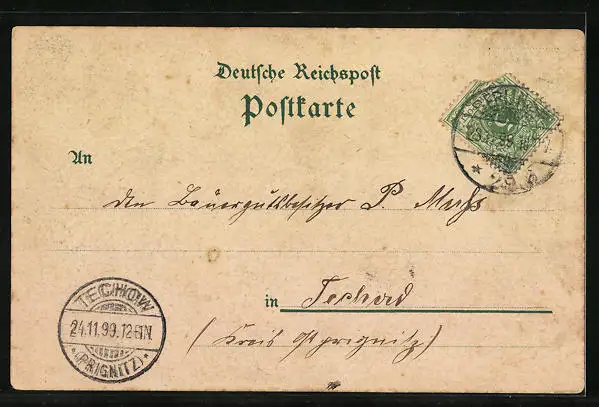 Deutsche Reichspost
Postkarte
BERLIN
An
den Bauergutsbesitzer P.
in Techow
(Kreis Ostprignitz)
TECHOW
24.11.99.12-1N.
*(PRIGNITZ)*